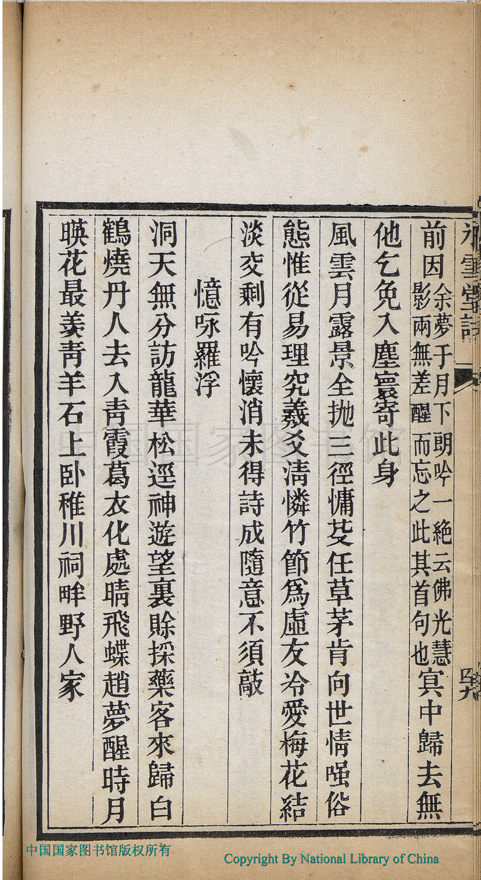 前因余夢于月下朗吟一絶云佛光慧影兩無差醒而忘之此其首句也冥中歸去無
他乞免入塵寰寄此身
風雲月露景全抛三徑慵芟任草茅肯向世情嗤俗
態惟從易理究羲爻清憐竹節爲虛友冷愛梅花結
淡交剩有吟懷消未得詩成隨意不須敲
憶咏羅浮
洞天無分訪龍華松逕神遊望裏賒採藥客來歸白
鶴燒丹人去入靑霞葛衣化處晴飛蝶趙夢醒時月
暎花最羨靑羊石上卧稚川祠畔野人家
中国国家图书馆版权所有
Copyright By National Library of China